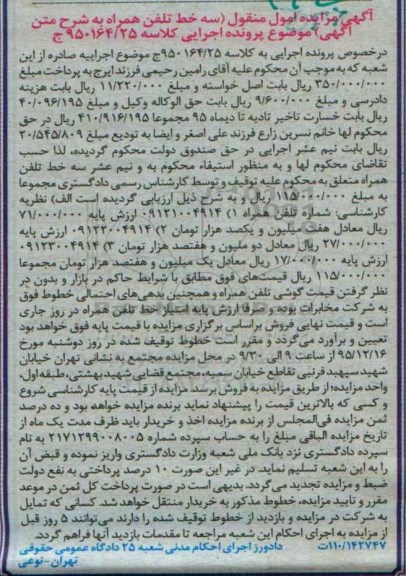 آگهی مزایده اموال منقول (سه خط تلفن همراه به شرح متن
آگهی) موضوع پرونده اجرایی کلاسه ۹۵۰۱۶۴/۲۵ ج
درخصوص پرونده اجرایی به کلاسه ۹۵۰۱۶۴/۲۵ج موضوع اجراییه صادره از این
شعبه که به موجب آن محکوم علیه آقای رامین رحیمی فرزند ایرج به پرداخت مبلغ
۳۵۰/۰۰۰/۰۰۰ ریال بابت اصل خواسته و مبلغ ۱۱/۲۲۰/۰۰۰ ریال بابت هزینه
دادرسی و مبلغ ۹/۶۰۰/۰۰۰ ریال بابت حق الوکاله وکیل و مبلغ ۴۰/۰۹۶/۱۹۵
ریال بابت خسارت تاخیر تادیه تا دیماه ۹۵ مجموعا ۴۱۰/۹۱۶/۱۹۵ ریال در حق
محکوم لها خانم نسرین زارع فرزند علی اصغر و ایضا به تودیع مبلغ ۲۰/۵۴۵/۸۰۹
ریال بابت نیم عشر اجرایی در حق صندوق دولت محکوم گردیده، لذا حسب
تقاضای محکوم لها و به منظور استیفاء محکوم به و نیم عشر سه خط تلفن
همراه متعلق به محکوم علیه توقیف و توسط کارشناس رسمی دادگستری مجموعا
به مبلغ ۱۱۵/۰۰۰/۰۰۰ ریال و به شرح ذیل ارزیابی گردیده است الف) نظریه
کارشناسی: شماره تلفن همراه ۱) ۰۹۱۲۱۰۰۴۹۱۴ ارزش پایه ۷۱/۰۰۰/۰۰۰
ریال معادل هفت میلیون و یکصد هزار تومان ۲) ۰۹۱۲۲۰۰۴۹۱۴ ارزش پایه
۲۷/۰۰۰/۰۰۰ ریال معادل دو ملیون و هفتصد هزار تومان ۳) ۰۹۱۲۳۰۰۴۹۱۴
ارزش پایه ۱۷/۰۰۰/۰۰۰ ریال معادل یک میلیون و هفتصد هزار تومان مجموعا
۱۱۵/۰۰۰/۰۰۰ ریال قیمت‌های فوق مطابق با شرایط حاکم در بازار و بدون در
نظر گرفتن قیمت گوشی تلفن همراه و همچنین بدهی‌های احتمالی خطوط فوق
به شرکت مخابرات بوده و صرفا ارزش پایه امتیاز خط تلفن همراه در روز جاری
است و قیمت نهایی فروش براساس برگزاری مزایده با قیمت پایه فوق خواهد بود
تعیین و برآورد می‌گردد و مقرر است خطوط توقیف شده در روز دوشنبه مورخ
۹۵/۱۲/۱۶ از ساعت ۹ الی ۹/۳۰ در محل مزایده مجتمع به نشانی تهران خیابان
شهید سپهبد قرنی تقاطع خیابان سمیه، مجتمع قضایی شهید بهشتی، طبقه اول،
واحد مزایده، از طریق مزایده به فروش برسد. مزایده از قیمت پایه کارشناسی شروع
و کسی که بالاترین قیمت را پیشنهاد نماید برنده مزایده خواهد بود و ده درصد
ثمن مزایده فی‌المجلس از برنده مزایده اخذ و خریدار باید ظرف مدت یک ماه از
تاریخ مزایده الباقی مبلغ را به حساب سپرده شماره ۲۱۷۱۲۹۹۰۰۸۰۰۵ به نام
سپرده دادگستری نزد بانک ملی شعبه وزارت دادگستری واریز نموده و قبض آن
را به این شعبه تسلیم نماید. در غیر این صورت ۱۰ درصد پرداختی به نفع دولت
ضبط و مزایده تجدید می‌گردد. بدیهی است در صورت پرداخت کل ثمن در موعد
مقرر و تایید مزایده، خطوط مذکور به خریدار منتقل خواهد شد. کسانی که تمایل
به شرکت در مزایده و بازدید از خطوط توقیف شده را دارند می‌توانند ۵ روز قبل
از مزایده به اجرای احکام این شعبه مراجعه تا مقدمات بازدید آنها فراهم گردد.
۱۱۰/۱۴۲۷۴۷ت دادورز اجرای احکام مدنی شعبه ۲۵ دادگاه عمومی حقوقی
تهران-نوعی